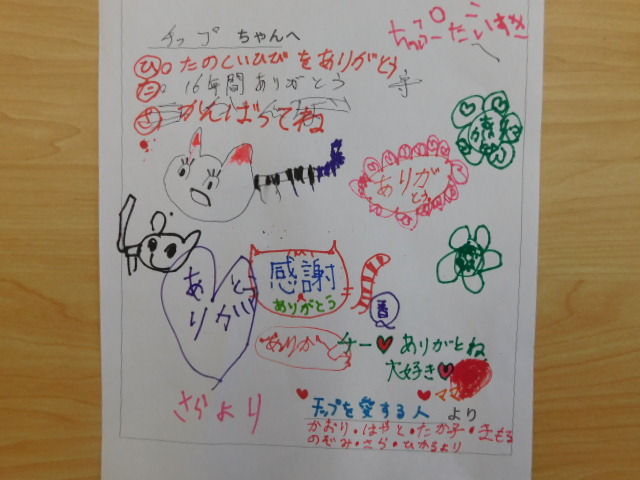 チップ ちゃんへ
ちっぷーだいすき
へ
ひ。たのしいひび をありがとう
た。16年間ありがとう
がんばってね
ありがとう
ありがとう
感謝
ありがとう
ありがとう
チー♥ありがとね
大好き♥
♥ママ
さらより
♥チップを愛する人 より
かおり・はやと・たか子・まもる
のぞみ・さら・ひかるより